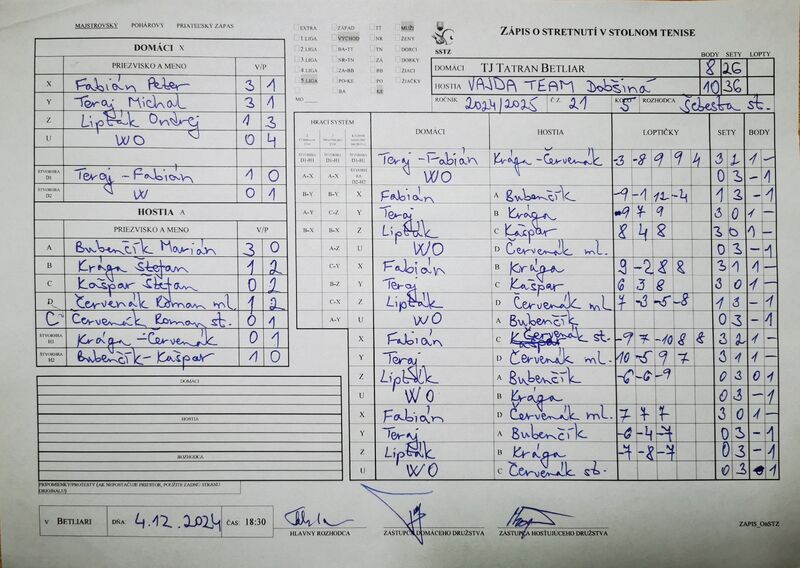 MAJSTROVSKÝ POHÁROVÝ PRIATEĽSKÝ ZÁPAS
EXTRA ZÁPAD TT MUŽI
1.LIGA VÝCHOD NR ŽENY
2.LIGA BA-TT TN DORCI
3.LIGA NR-TN ZA DORKY
4.LIGA ZA-BB BB ŽIACI
5.LIGA PO-KE PO ŽIAČKY
MO BA KE
SSTZ
ZÁPIS O STRETNUTÍ V STOLNOM TENISE
BODY SETY LOPTY
DOMÁCI TJ TATRAN BETLIAR 8 26
HOSTIA VAJDA TEAM Dobšiná 10 36
ROČNÍK 2024/2025 Č.Z. 21 ROZHODCA Šebesta st.
DOMÁCI X
PRIEZVISKO A MENO V/P
X Fabián Peter 3 1
Y Teraj Michal 3 1
Z Lipták Ondrej 1 3
U WO 0 4
ŠTVORHRA D1 Teraj-Fabián 1 0
ŠTVORHRA D2 W 0 1
HOSTIA A
PRIEZVISKO A MENO V/P
A Bubenčík Marián 3 0
B Krága Štefan 1 2
C Kašpar Štefan 0 2
D Červenák Roman ml. 1 2
C Červenák Roman st. 0 1
ŠTVORHRA H1 Krága-Červenák 0 1
ŠTVORHRA H2 Bubenčík-Kašpar 1 0
DOMÁCI
HOSTIA
ROZHODCA
PRIPOMIENKY/PROTESTY (AK NEPOSTAČUJE PRIESTOR, POUŽITE ZADNÚ STRANU ORIGINÁLU!)
HRACÍ SYSTÉM DOMÁCI HOSTIA LOPTIČKY SETY BODY
ŠTVORHRA D1-H1 ŠTVORHRA D1-H1 ŠTVORHRA D1-H1 Teraj-Fabián Krága-Červenák -3 -8 9 9 4 3 2 1 -
A-X A-X ŠTVORHRA D2-H2 WO 0 3 - 1
B-Y B-Y X Fabián A Bubenčík -9 -1 12 -4 1 3 - 1
A-Y C-Z Y Teraj B Krága 9 7 9 3 0 1 -
B-X B-X Z Lipták C Kašpar 8 4 8 3 0 1 -
A-Z U WO D Červenák ml. 0 3 - 1
C-Y X Fabián B Krága 9 -2 8 8 3 1 1 -
B-Z Y Teraj C Kašpar 6 3 8 3 0 1 -
C-X Z Lipták D Červenák ml 7 -3 -5 -8 1 3 - 1
A-Y U WO A Bubenčík 0 3 - 1
X Fabián C Červenák st. -9 7 -10 8 8 3 2 1 -
Y Teraj D Červenák ml. 10 -5 9 7 3 1 1 -
Z Lipták A Bubenčík -6 -6 -9 0 3 0 1
U WO B Krága 0 3 - 1
X Fabián D Červenák ml. 7 7 7 3 0 1 -
Y Teraj A Bubenčík -6 -4 -7 0 3 - 1
Z Lipták B Krága -7 -8 -7 0 3 - 1
U WO C Červenák st. 0 3 1
V BETLIARI DŇA: 4.12.2024 ČAS: 18:30
HLAVNÝ ROZHODCA ZÁSTUPCA DOMÁCEHO DRUŽSTVA ZÁSTUPCA HOSŤUJÚCEHO DRUŽSTVA ZAPIS_OttSTZ